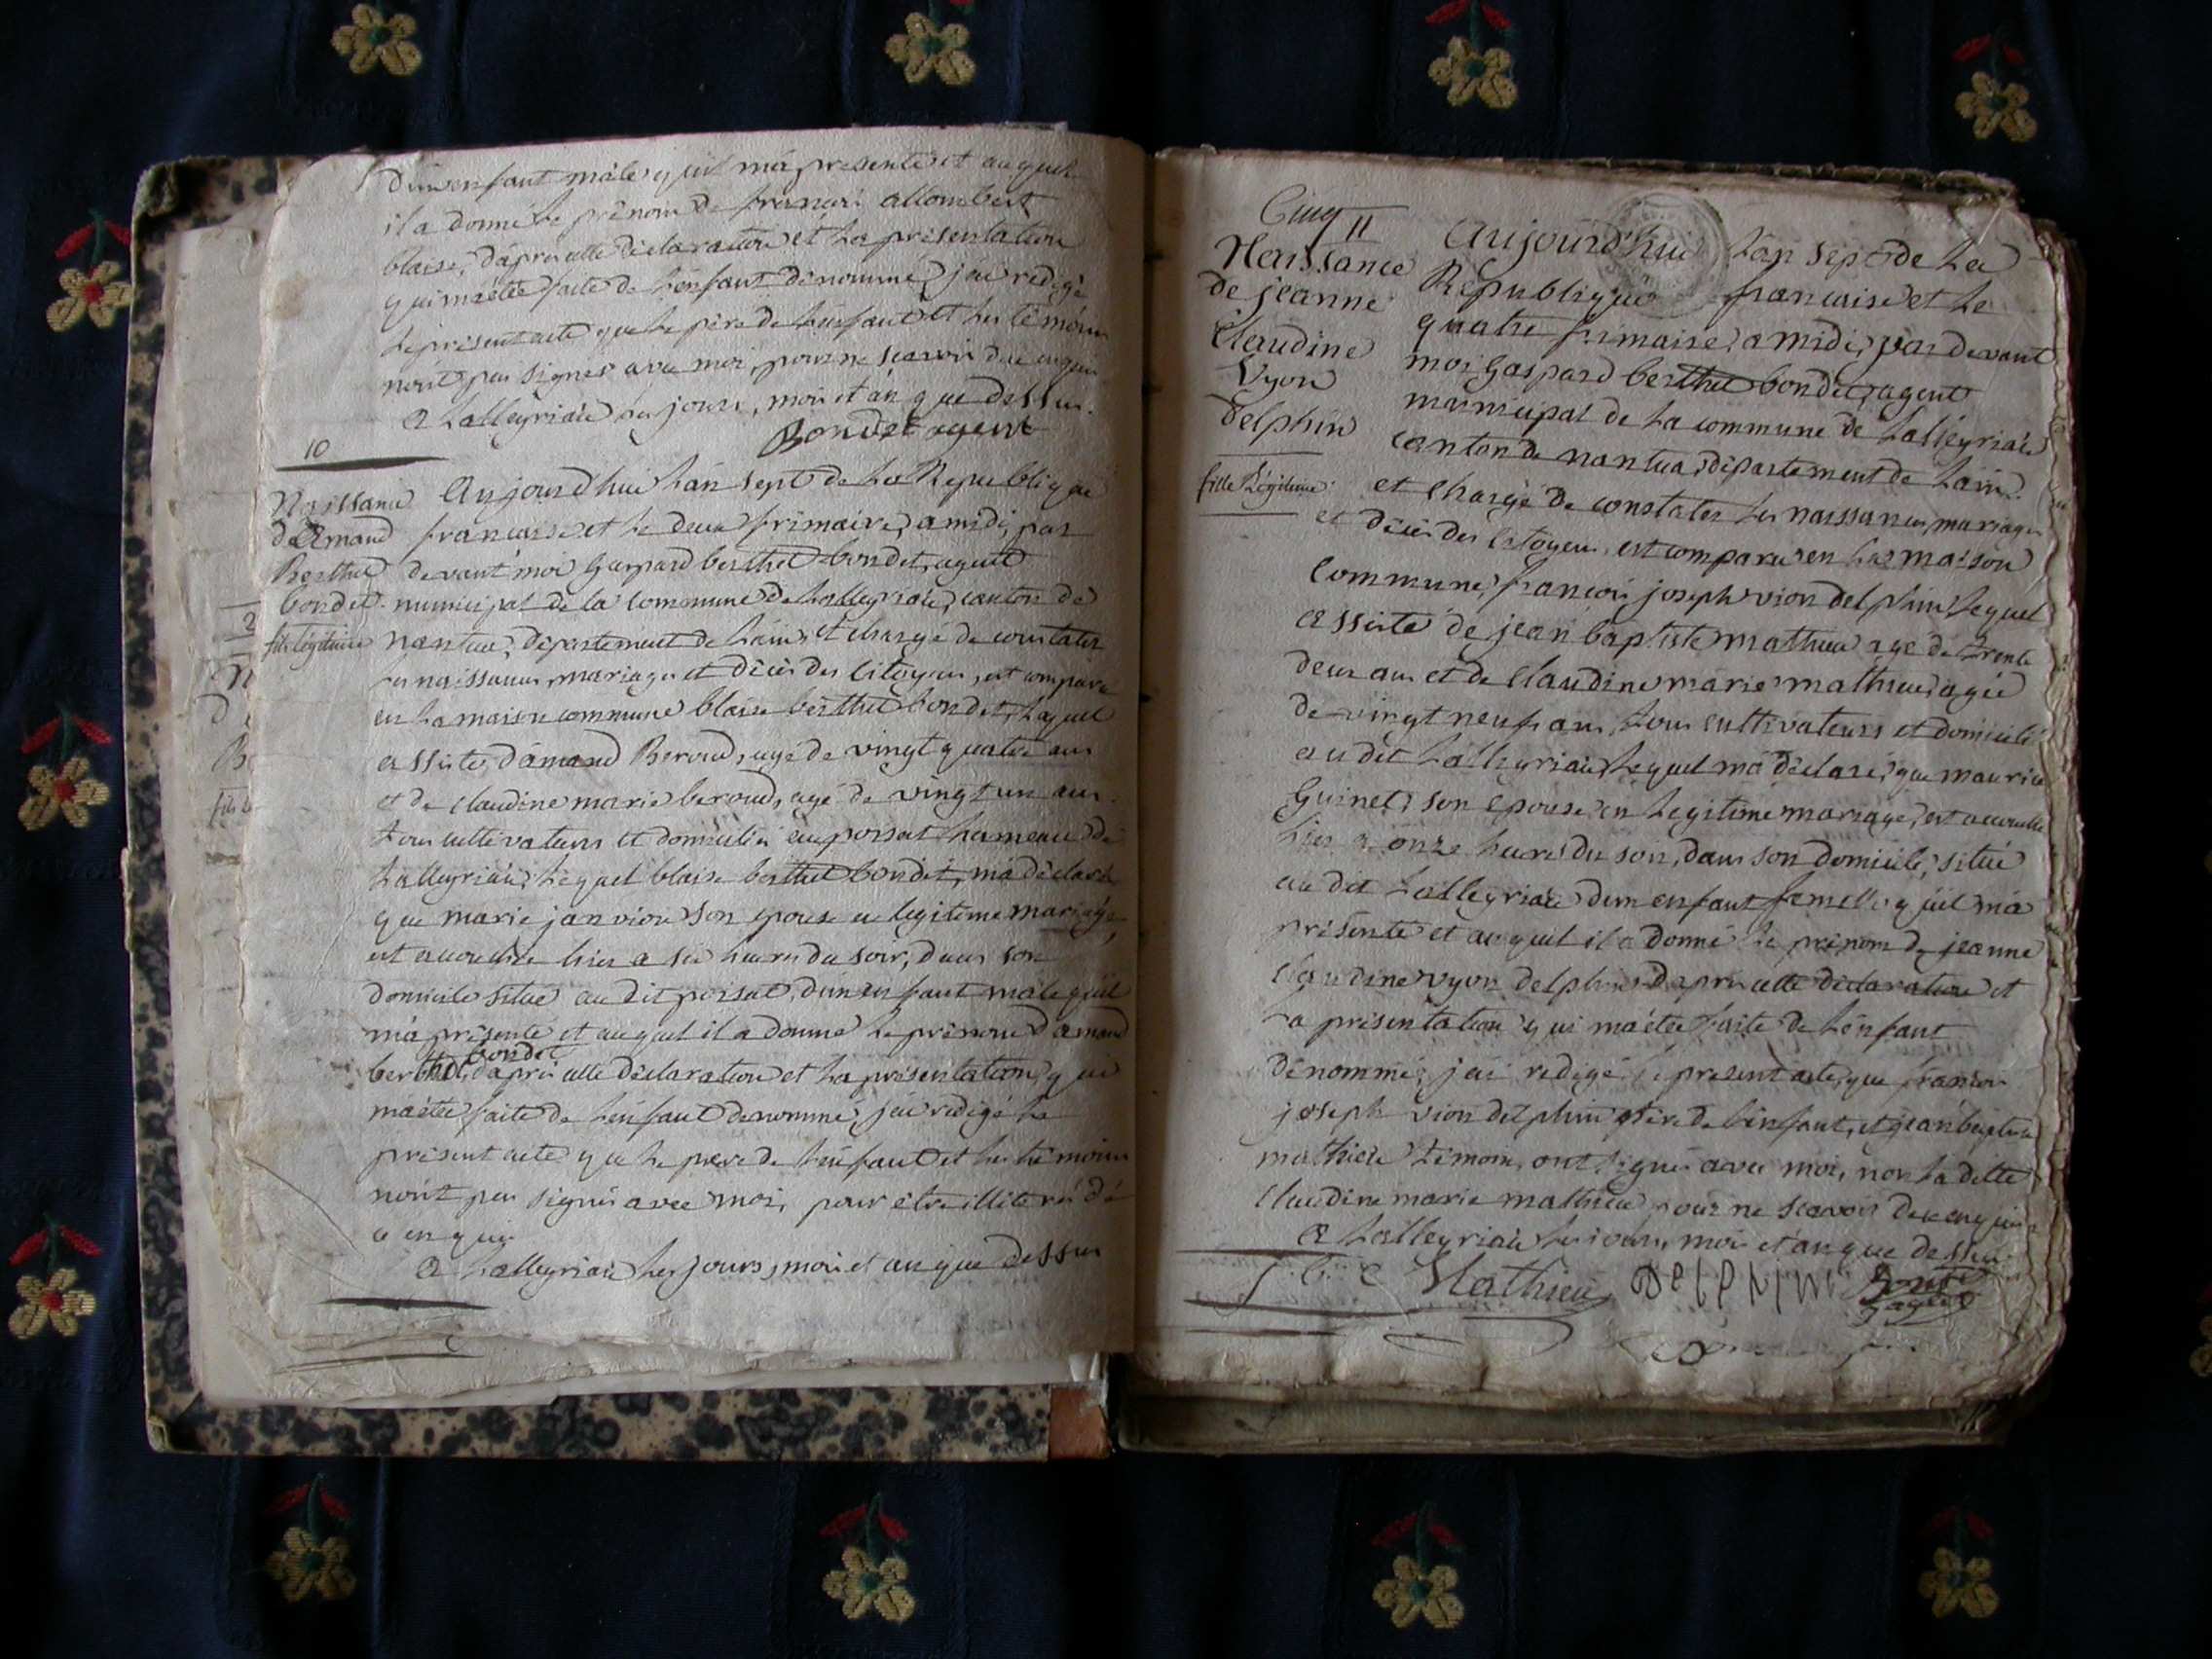 d'un enfant mâle qu'il m'a presenté et auquel
il a donné le prénom de françois allombert
blaise, d'après cette déclaration et la présentation
qui m'a étée faite de l'enfant dénommé, j'ai redigé
le présent acte que le père de l'enfant et les témoins
n'ont pas signés avec moi, pour ne scavoir de ce enquis
a Lalleyriat les jours, mois et an que dessus.
Bondet agent
10
Naissance
d'amand
Berthet
bondet
fils légitime
Aujourd'hui l'an sept de la République
francaise et le deux frimaire, a midi, par
devant moi Gaspard berthet bondet, agent
municipal de la commune de Lalleyriat, canton de
nantua, département de l'ain, et chargé de constater
les naissances, mariages et décès des citoyens, est comparu
en la maison commune blaise berthet bondet, lequel
assisté d'amand Beroud, agé de vingt quatre ans
et de claudine marie beroud, agé de vingt un ans
tous cultivateurs et domiciliés au poisat hameau de
Lalleyriat, lequel blaise berthet bondet, m'a déclaré
que marie jan vion son epouse en legitime mariage,
est accouchée hier a six heures du soir, dans son
domicile situé au dit poisat, d'un enfant mâle qu'il
m'a présenté et auquel il a donné le prénom d'amand
berthet bondet, d'après cette déclaration et la présentation, qui
m'a étée faite de l'enfant denommé, j'ai redigé le
présent acte que le pere de l'enfant et les témoins
n'ont pas signés avec moi, pour etre illiterés de
ce enquis
a Lalleyriat les jours, mois et an que dessus
Cinq
11
Naissance
de jeanne
Claudine
Vyon
delphin
fille légitime
Aujourd'hui l'an sept de la
République francaise et le
quatre frimaire, a midi, par devant
moi Gaspard berthet bondet, agent
municipal de la commune de Lalleyriat
canton de nantua, département de l'ain.
et chargé de constater les naissances, mariages
et décès des citoyens, est comparu en la maison
commune, francois joseph vion delphin, lequel
assisté de jean baptiste mathieu agé de trente
deux ans et de claudine marie mathieu, agée
de vingt neuf ans, tous cultivateurs et domiciliés
au dit Lalleyriat, lequel m'a déclaré, que maurise
Guinet, son epouse en legitime mariage, est accouchée
hier a onze heures du soir, dans son domicile, situé
au dit Lalleyriat d'un enfant femelle qu'il m'a
présenté et auquel il a donné le prénom de jeanne
claudine vyon delphin d'après cette déclaration et
la présentation qui m'a étée faite de l'enfant
dénommé, j'ai redigé le present acte, que francois
joseph vion delphin père de l'enfant, et jean baptiste
mathieu témoin, ont signés avec moi, non la ditte
claudine marie mathieu pour ne scavoir de ce enquise
a Lalleyriat les jours, mois et an que dessus.
Mathieu delphin Bondet
agent